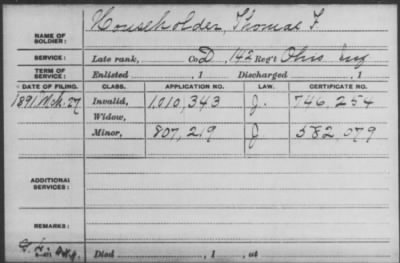 Householder, Thomas F
NAME OF SOLDIER:
SERVICE: Late rank, Co. D, 142 Reg't Ohio Inf
TERM OF SERVICE: Enlisted , 1 Discharged , 1
DATE OF FILING. CLASS. APPLICATION NO. LAW. CERTIFICATE NO.
1891 Mch. 27 Invalid, 1,010,343 J. 746,254
Widow,
Minor, 807,219 J 582,079
ADDITIONAL SERVICES:
REMARKS:
Died , 1 , at